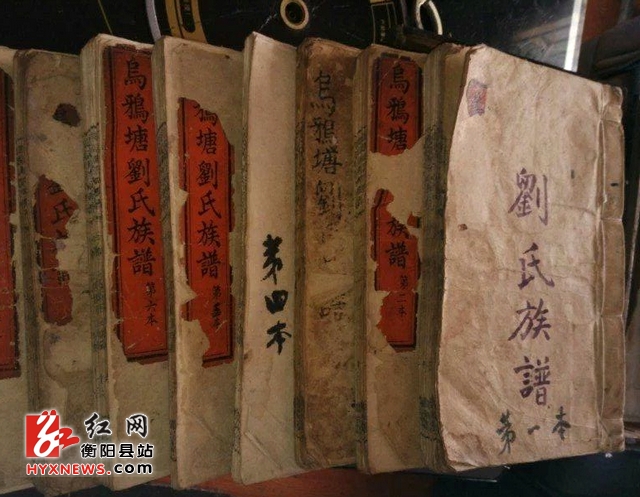 劉氏族譜
第一本
烏鴉塘
族譜
第二本
烏鴉塘劉
第四本
塘劉氏族譜
第五本
烏鴉塘劉氏族譜
第六本
氏
红网
衡阳县站
HYXNEWS.COM